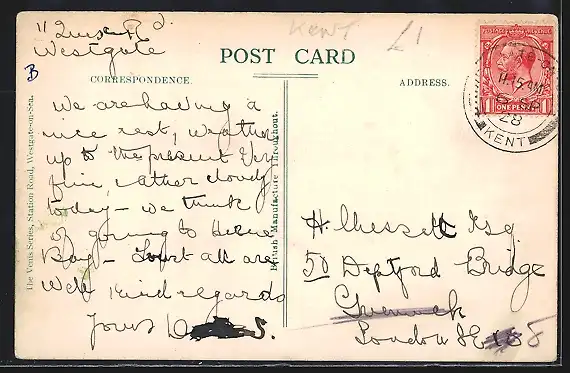 Rd.
Westgate
Kent
£1
B
POST CARD
CORRESPONDENCE.
ADDRESS.
We are having a
nice rest, weather
up to the present very
fine, rather cloudy
today - we think
of going to Herne
Bay - trust all are
well Kind regards
Yours
S.
The Vents Series, Station Road, Westgate-on-Sea.
British Manufacture Throughout.
POSTAGE REVENUE
1 ONE PENNY 1
11.15 AM
28
KENT
H. Chessell Esq
50 Deptford Bridge
Greenwich
London SE 8